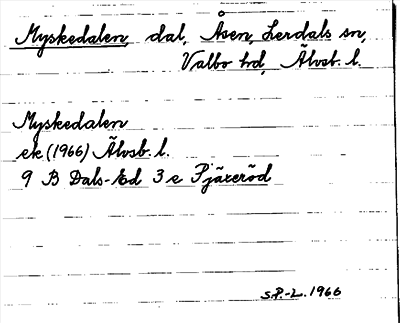 Myskedalen, dal, Åsen, Lerdals sn,
Valbo hd, Älvsb. l.
Myskedalen
ek (1966) Älvsb. l.
9 B Dals-Ed 3 e Pjäxeröd
S.P.-L. 1966